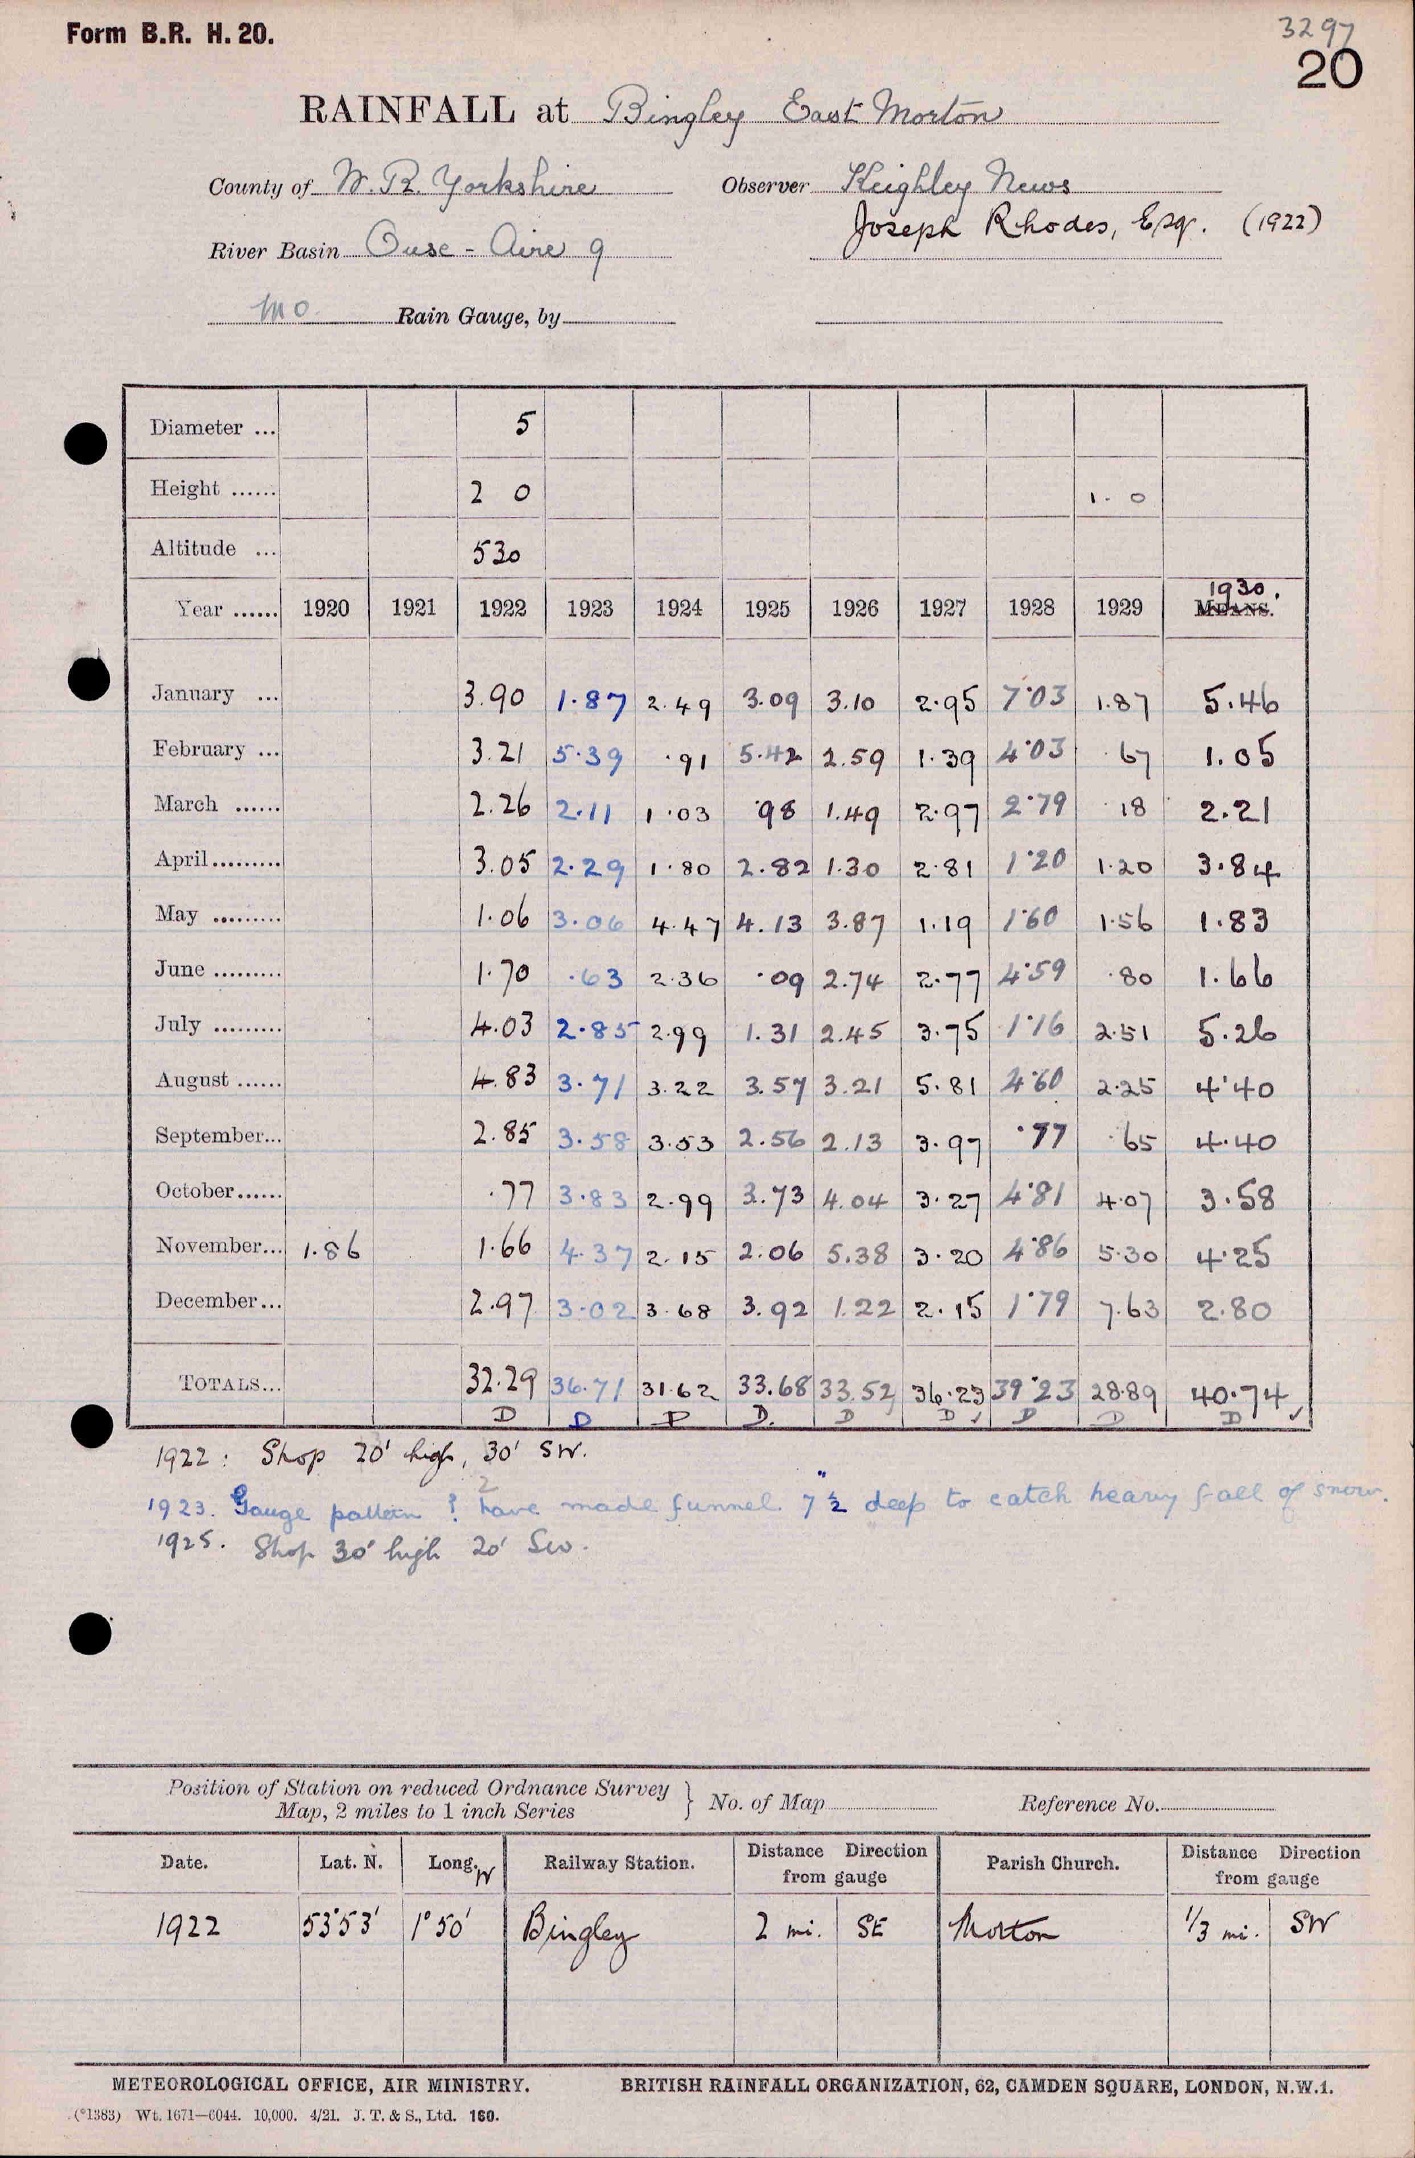 Form B.R. H. 20.
3297
20
RAINFALL at Bingley East Morton
County of W. R. Yorkshire Observer Keighley News
Joseph Rhodes, Esq. (1922)
River Basin Ouse - Aire 9
MO Rain Gauge, by
Diameter ... 5
Height ...... 2 0 1. 0
Altitude ... 530
1930.
Year ...... 1920 1921 1922 1923 1924 1925 1926 1927 1928 1929 MEANS.
January ... 3.90 1.87 2.49 3.09 3.10 2.95 7.03 1.87 5.46
February ... 3.21 5.39 .91 5.42 2.59 1.39 4.03 .67 1.05
March ...... 2.26 2.11 1.03 .98 1.49 2.97 2.79 .18 2.21
April ......... 3.05 2.29 1.80 2.82 1.30 2.81 1.20 1.20 3.84
May ......... 1.06 3.06 4.47 4.13 3.87 1.19 1.60 1.56 1.83
June ......... 1.70 .63 2.36 .09 2.74 2.77 4.59 .80 1.66
July ......... 4.03 2.85 2.99 1.31 2.45 3.75 1.16 2.51 5.26
August ...... 4.83 3.71 3.22 3.57 3.21 5.81 4.60 2.25 4.40
September... 2.85 3.58 3.53 2.56 2.13 3.97 .77 .65 4.40
October...... .77 3.83 2.99 3.73 4.04 3.27 4.81 4.07 3.58
November... 1.86 1.66 4.37 2.15 2.06 5.38 3.20 4.86 5.30 4.25
December... 2.97 3.02 3.68 3.92 1.22 2.15 1.79 7.63 2.80
TOTALS... 32.29 36.71 31.62 33.68 33.52 36.23 39.23 28.89 40.74
D D D D. D D D D D
1922: Shop 20' high, 30' SW.
1923. Gauge pattern ? have made funnel 7½" deep to catch heavy fall of snow.
1925. Shop 30' high 20' SW.
Position of Station on reduced Ordnance Survey
Map, 2 miles to 1 inch Series } No. of Map Reference No.
Date. Lat. N. Long. W Railway Station. Distance Direction from gauge Parish Church. Distance Direction from gauge
1922 53°53' 1°50' Bingley 2 mi. SE Morton 1/3 mi. SW
METEOROLOGICAL OFFICE, AIR MINISTRY. BRITISH RAINFALL ORGANIZATION, 62, CAMDEN SQUARE, LONDON, N.W.1.
(*1383) Wt. 1671—6044. 10,000. 4/21. J. T. & S., Ltd. 160.